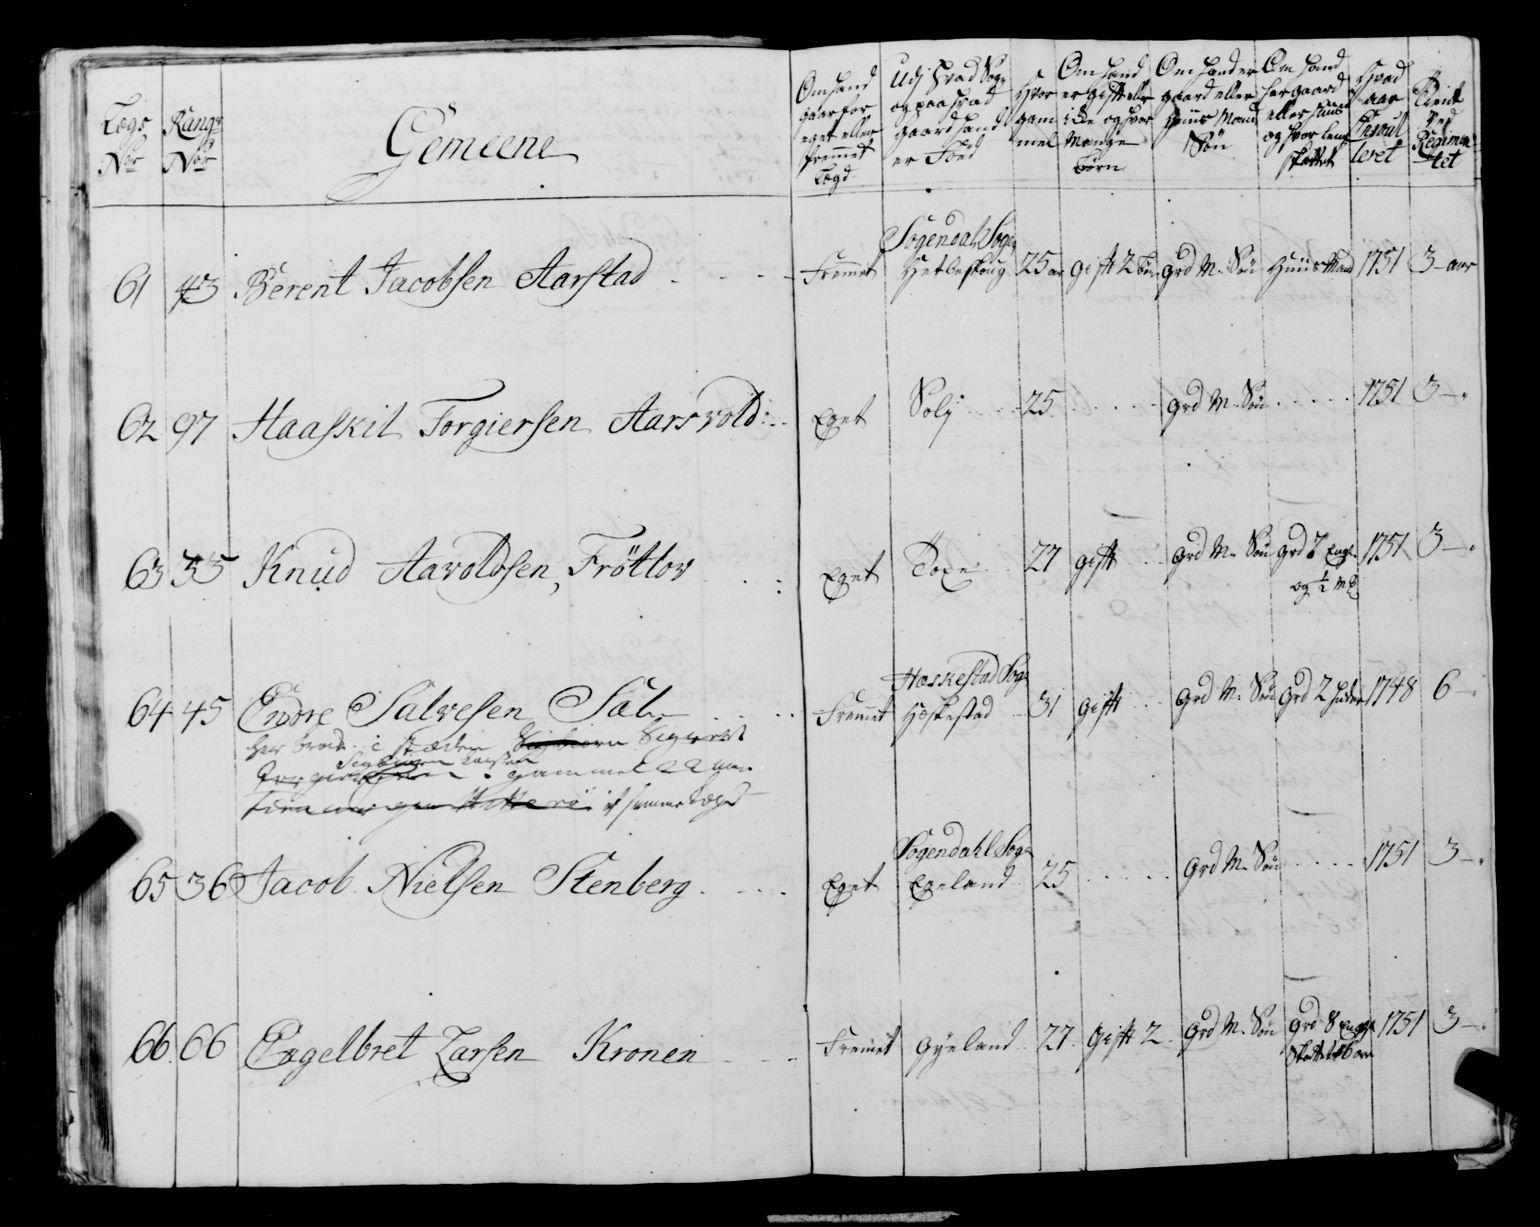 Lægs Nor
Rangs Nor
Gemeene
Om hand gaar for eget eller fremmet Lægd
Udj hvad Sogn og paa hvad gaard hand er Föd
Hvor gammel
Om hand er gift eller icke og hvor Mange Börn
Om hand er gaard eller Huus Mands Sön
Om hand har gaard eller Huus og hvor lenge skattet
Hvad aar Enroulleret
Tient ved Regimentet
61 43 Berent Jacobsen Aarstad Fremet Sogendahl Sogn 25 aar gift 2 Grd M. Sön Huus Mand 1751 3 aar
62 97 Haaskil Torgiersen Aarsvold Eget Solj 25 Grd M. Sön 1751 3
63 35 Knud Aavoldsen, Fröttov Eget 27 gift Grd M. Sön Grd 1751 3
og ½
64 45 Endre Salvesen Sæl Fremet Hæskestad Sogn Hæskestad 31 gift Grd M. Sön Grd 2 1748 6
i stæden Sigvort
gammel 22 aar
af samme Lægd
65 36 Jacob Nielsen Stenberg Eget Sogendahl Sogn Egeland 25 Grd M. Sön 1751 3
66 66 Engelbret Larsen Kronen Fremet Gyeland 27 Gift 2 Grd M. Sön Grd 8 1751 3
Skattet 6 aar